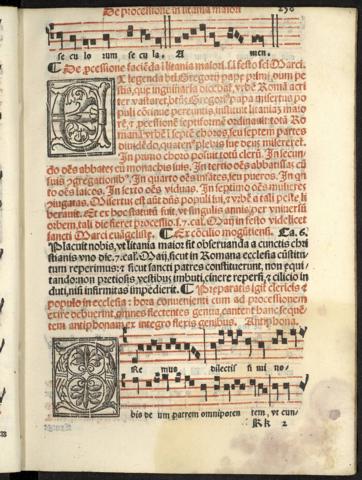 De processione in litania maiori
se cu lo rum se cu la. A men.
De ꝓcessione faciẽda i litania maiori. I festo sẽti Marci.
legenda bti Gregorij pape primi,
que inguinaria dicebat, vrbẽ Romã
ter vastaret, btũs Gregorius papa misertus po
puli cõtinue pereuntis, instituit litaniaz maio
rẽ, et ꝓcessionẽ septiformẽ ordinauit: totã Ro
manã vrbẽ i septẽ choros, seu septem partes
diuidẽdo, quatenꝰ plebis sue deus misereret.
In primo choro posuit totũ clerũ. In secun
do oẽs abbates cũ monachis suis. In tertio oẽs abbatissas cũ
suis ↄgregationibꝰ. In quarto oẽs infantes, seu pueros. In qn
to oẽs laicos. In sexto oẽs viduas. In septimo oẽs mulieres
ↄiugatas. Misertus est aũt dñs populi sui, et vrbẽ a tali peste li
berauit. Et ex hoc statutũ fuit, vt singulis annis per vniuersũ
orbem, tali die fieret processio. in festo
sancti Marci euãgelistẽ. Ex cõcilio mogũtiens. Ca. 6.
Placuit nobis, vt litania maior sit obseruanda a cunctis chri
stianis vno die. 7. cal. Maij, sicut in Romana ecclesia cõstitu
tum reperimus: et sicut sancti patres constituerunt, non equi
tando: non preciosis vestibus induti, cinere respersi, et cilicio in
duti, nisi infirmitas impedierit. Preparatis igit clericis et
populo in ecclesia: hora conuenienti cum ad processionem
exire debuerint, omnes flectentes genua, cantent hanc seqꝫ
tem antiphonam ex integro flexis genibus. Antiphona.
Re mus dilecti si mi no-
bis de um patrem omnipoten tem, vt cun-
Kk 2